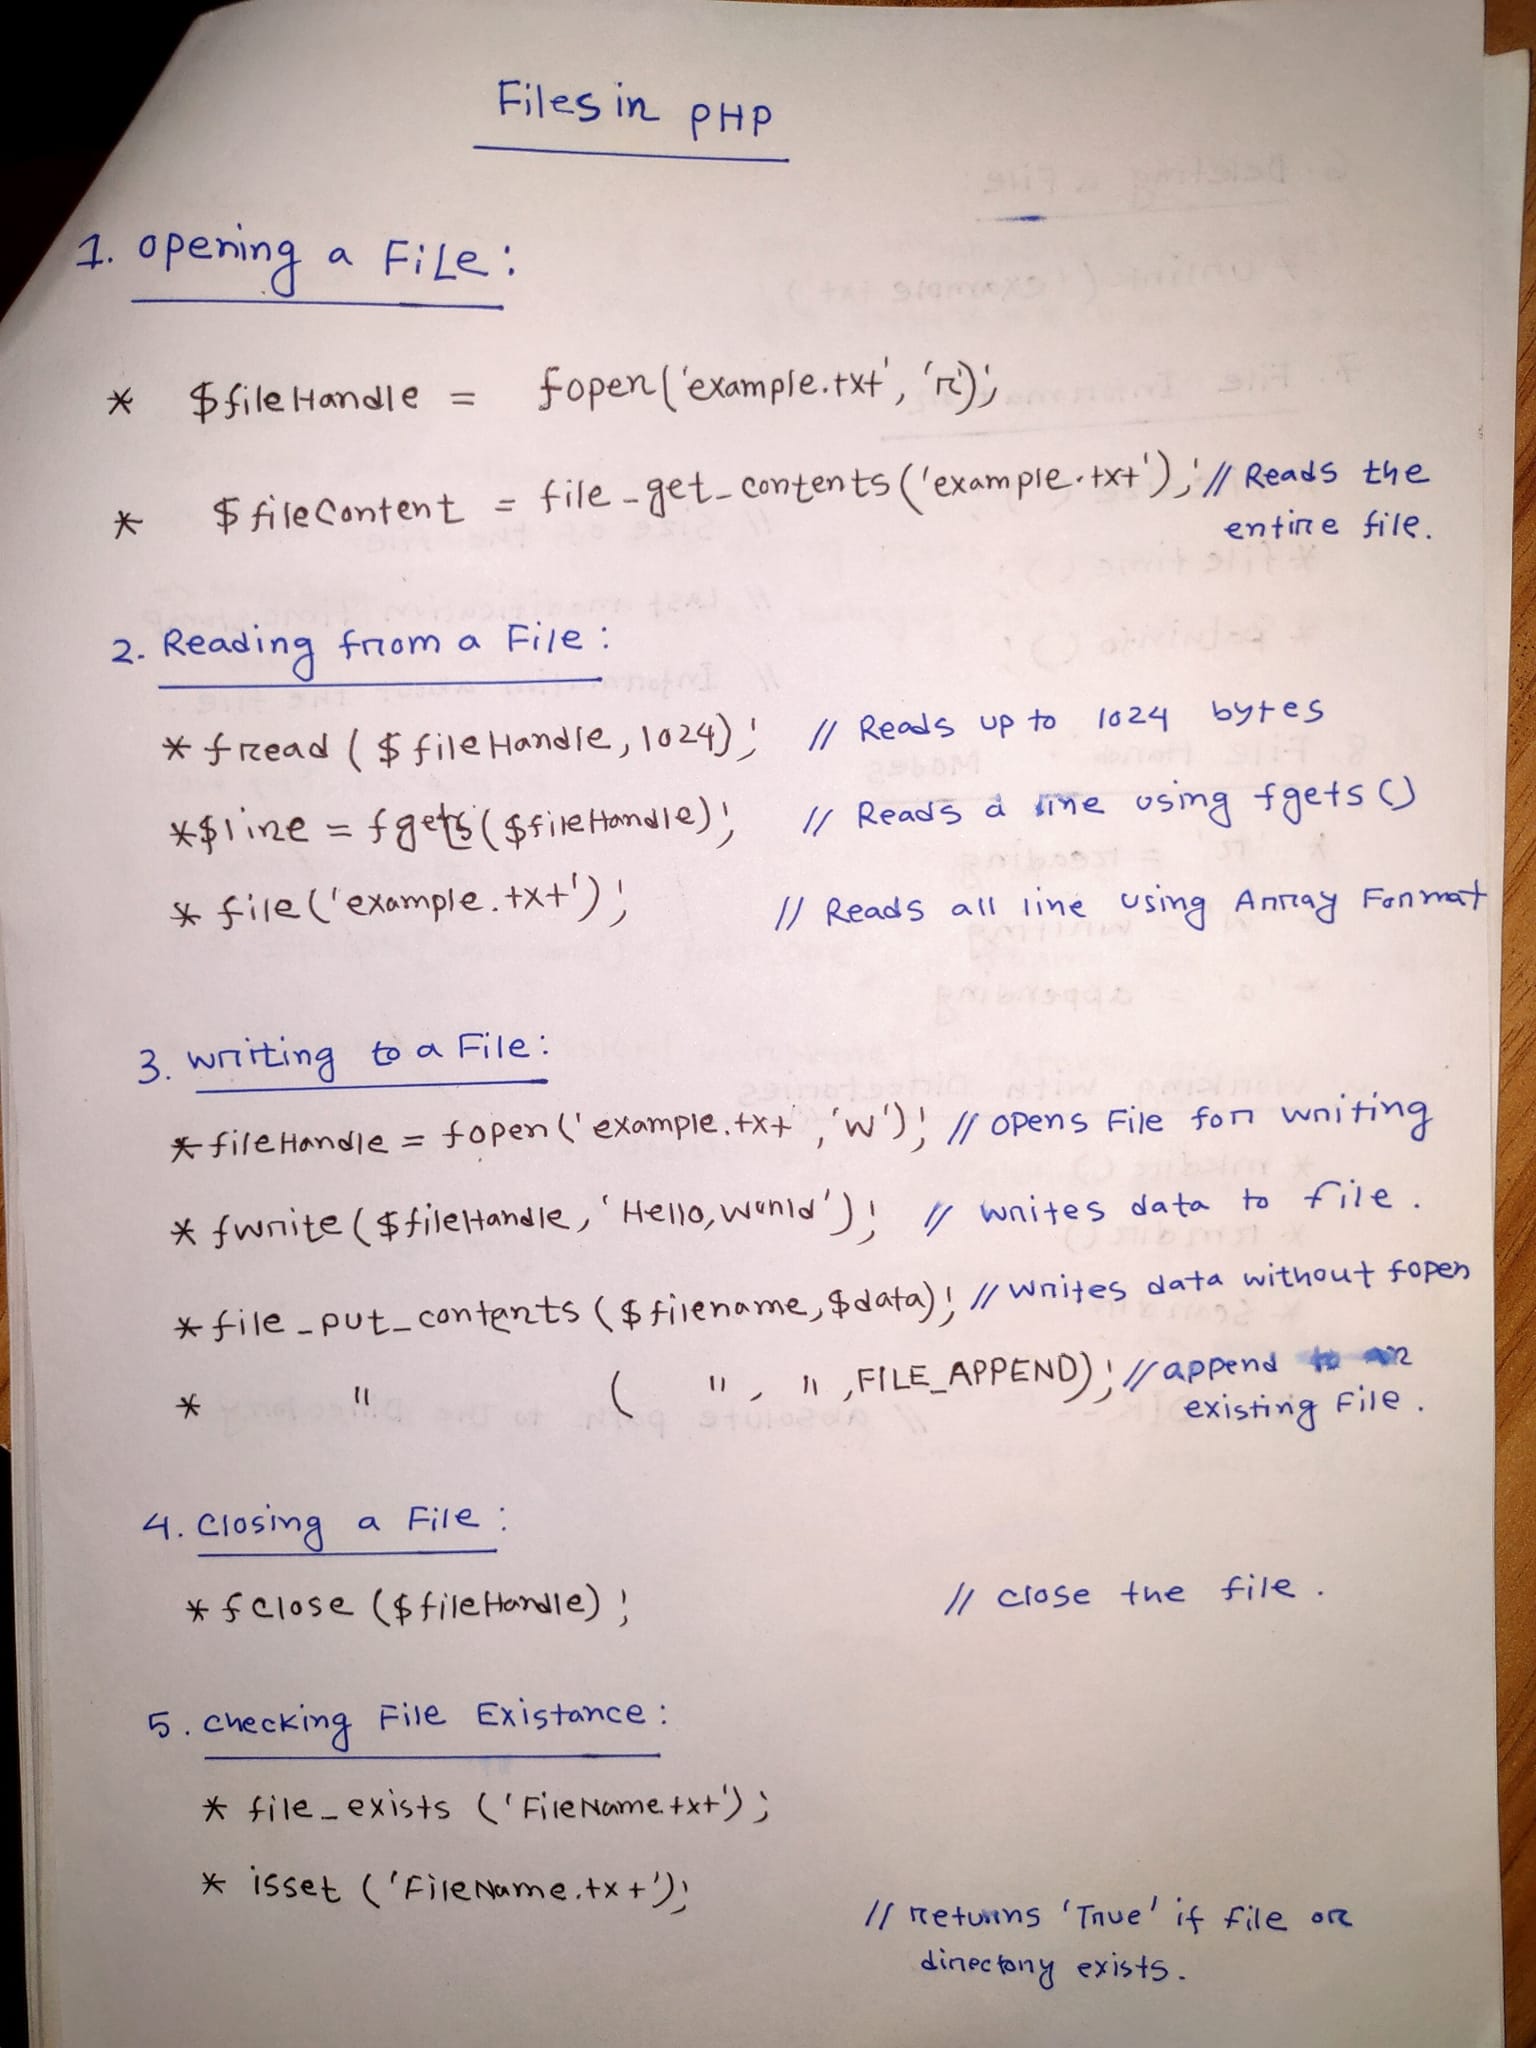 Files in PHP
1. Opening a File:
* $fileHandle = fopen('example.txt', 'r');
* $fileContent = file_get_contents('example.txt'); // Reads the
entire file.
2. Reading from a File:
* fread ($fileHandle, 1024); // Reads up to 1024 bytes
* $line = fgets($fileHandle); // Reads a line using fgets()
* file('example.txt'); // Reads all line using Array Format
3. Writing to a File:
* fileHandle = fopen('example.txt', 'w'); // opens File for writing
* fwrite ($fileHandle, 'Hello, World'); // writes data to file.
* file_put_contents ($filename, $data); // writes data without fopen
* " ( ", ", FILE_APPEND); // append
existing File.
4. Closing a File:
* fclose ($fileHandle); // close the file.
5. Checking File Existance:
* file_exists ('FileName.txt');
* isset ('FileName.txt');
// returns 'True' if file or
directory exists.